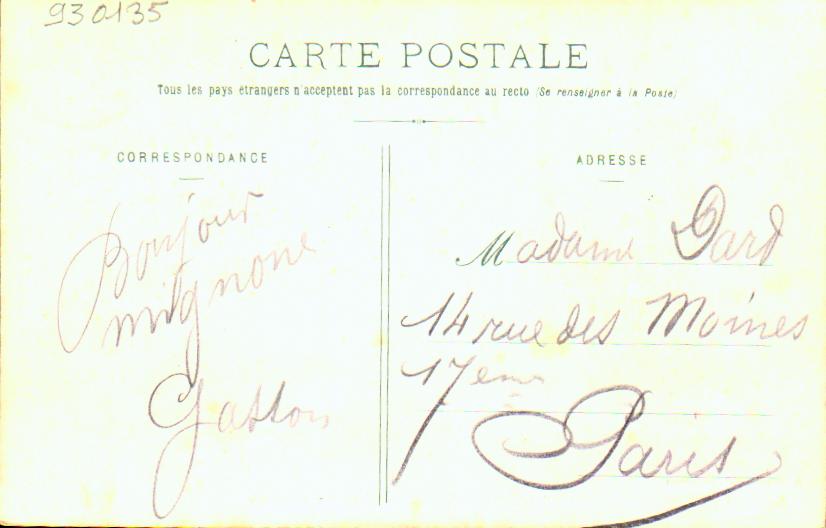 930135
CARTE POSTALE
Tous les pays étrangers n'acceptent pas la correspondance au recto (Se renseigner à la Poste)
CORRESPONDANCE
Bonjour
mignone
Gaston
ADRESSE
Madame Gard
14 rue des Moines
17eme
Paris